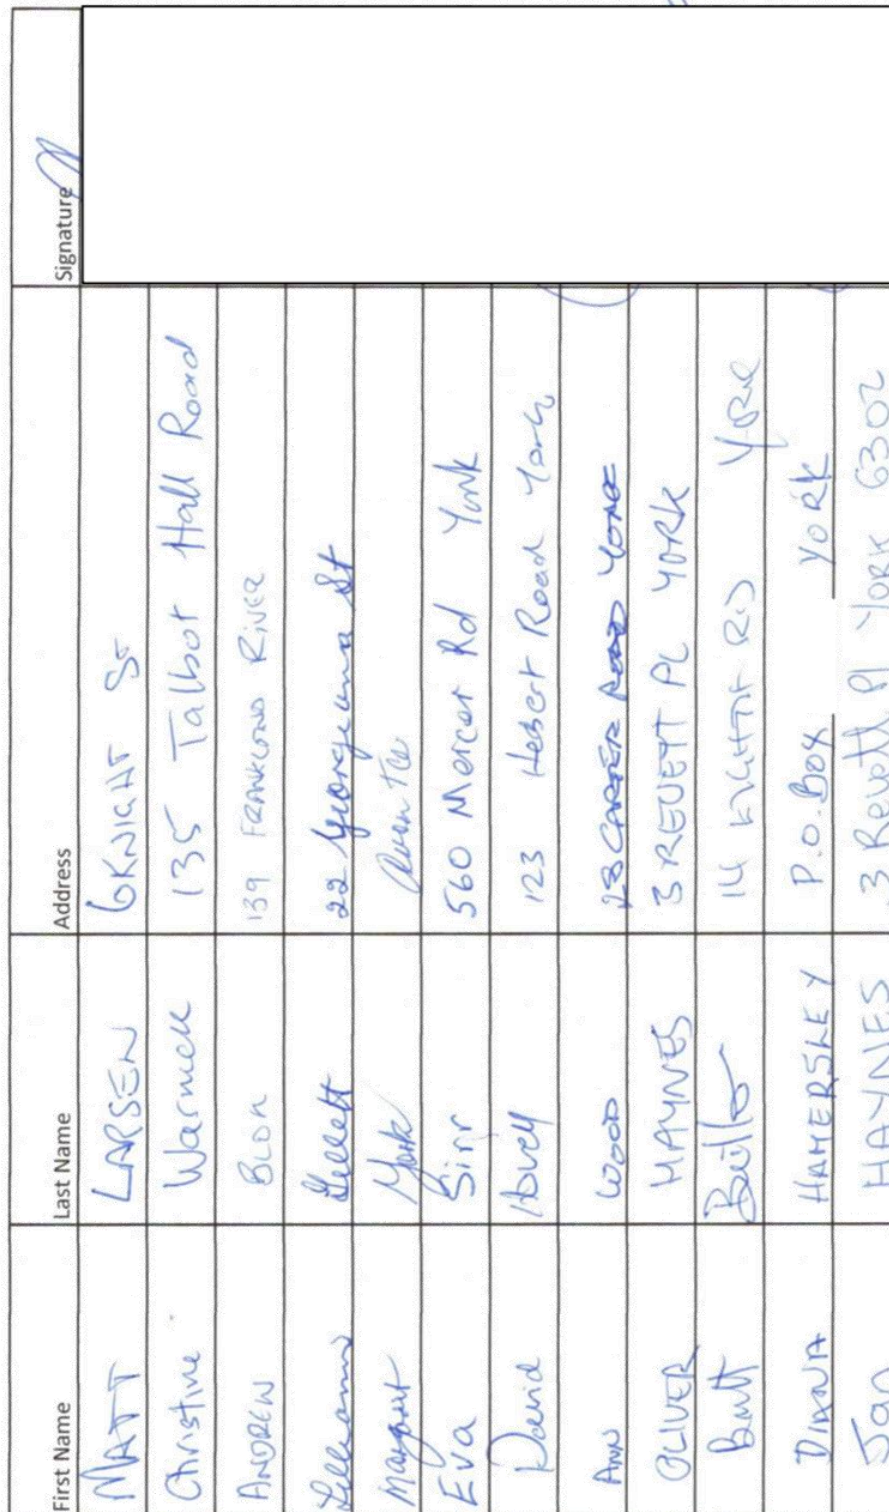 First Name Last Name Address Signature
MATT LARSEN 6 KNIGHT ST
Christine Warnick 135 Talbot Hall Road
ANDREW BLOK 139 FRANKLAND RIVER
22 Georgeanna St
Margaret York Tce
Eva Sirr 560 Mercer Rd York
David 123 Road York
Ann WOOD 28 CARTER ROAD YORK
OLIVER HAYNES 3 REVETT PL YORK
14 RD YORK
DIANA HAMERSLEY P.O. Box YORK
Jan HAYNES 3 Revett Pl York 6302